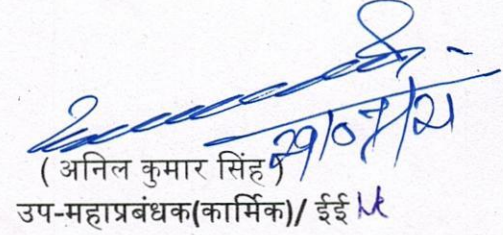 29/07/21
( अनिल कुमार सिंह )
उप-महाप्रबंधक(कार्मिक)/ ईई